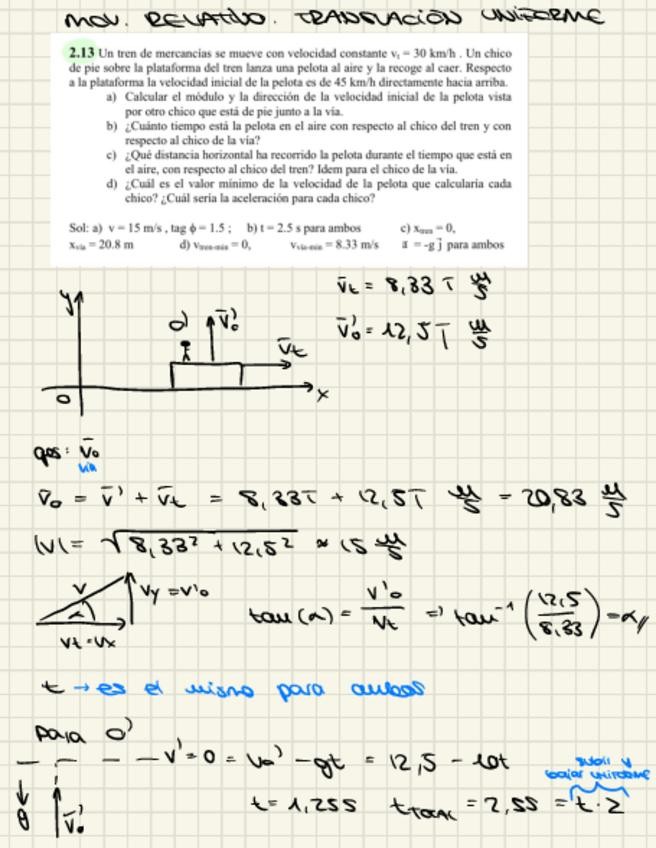 MOV. RELATIVO. TRANSLACIÓN UNIFORME
2.13 Un tren de mercancías se mueve con velocidad constante vₜ = 30 km/h . Un chico
de pie sobre la plataforma del tren lanza una pelota al aire y la recoge al caer. Respecto
a la plataforma la velocidad inicial de la pelota es de 45 km/h directamente hacia arriba.
a) Calcular el módulo y la dirección de la velocidad inicial de la pelota vista
por otro chico que está de pie junto a la vía.
b) ¿Cuánto tiempo está la pelota en el aire con respecto al chico del tren y con
respecto al chico de la vía?
c) ¿Qué distancia horizontal ha recorrido la pelota durante el tiempo que está en
el aire, con respecto al chico del tren? Idem para el chico de la vía.
d) ¿Cuál es el valor mínimo de la velocidad de la pelota que calcularía cada
chico? ¿Cuál sería la aceleración para cada chico?
Sol: a) v = 15 m/s , tag ϕ = 1.5 ; b) t = 2.5 s para ambos c) xtren = 0,
xvía = 20.8 m d) vtren-min = 0, vvía-min = 8.33 m/s a⃗ = -g j⃗ para ambos
v̄t = 8,33 ī m/s
y o' v̄o' v̄o' = 12,5 j̄ m/s
v̄t
o x
v̄o
vía
v̄o = v̄' + v̄t = 8,33ī + 12,5j̄ m/s = 20,83 m/s
|v| = √8,33² + 12,5² ≈ 15 m/s
v vy = v'o tan(α) = v'o/vt => tan⁻¹ (12,5/8,33) = α//
α
vt = vx
t → es el mismo para ambos
para o'
v' = 0 = vo' - gt = 12,5 - 10t
subir y
bajar uniforme
v̄o' t = 1,25s tTOTAL = 2,5s = t · 2